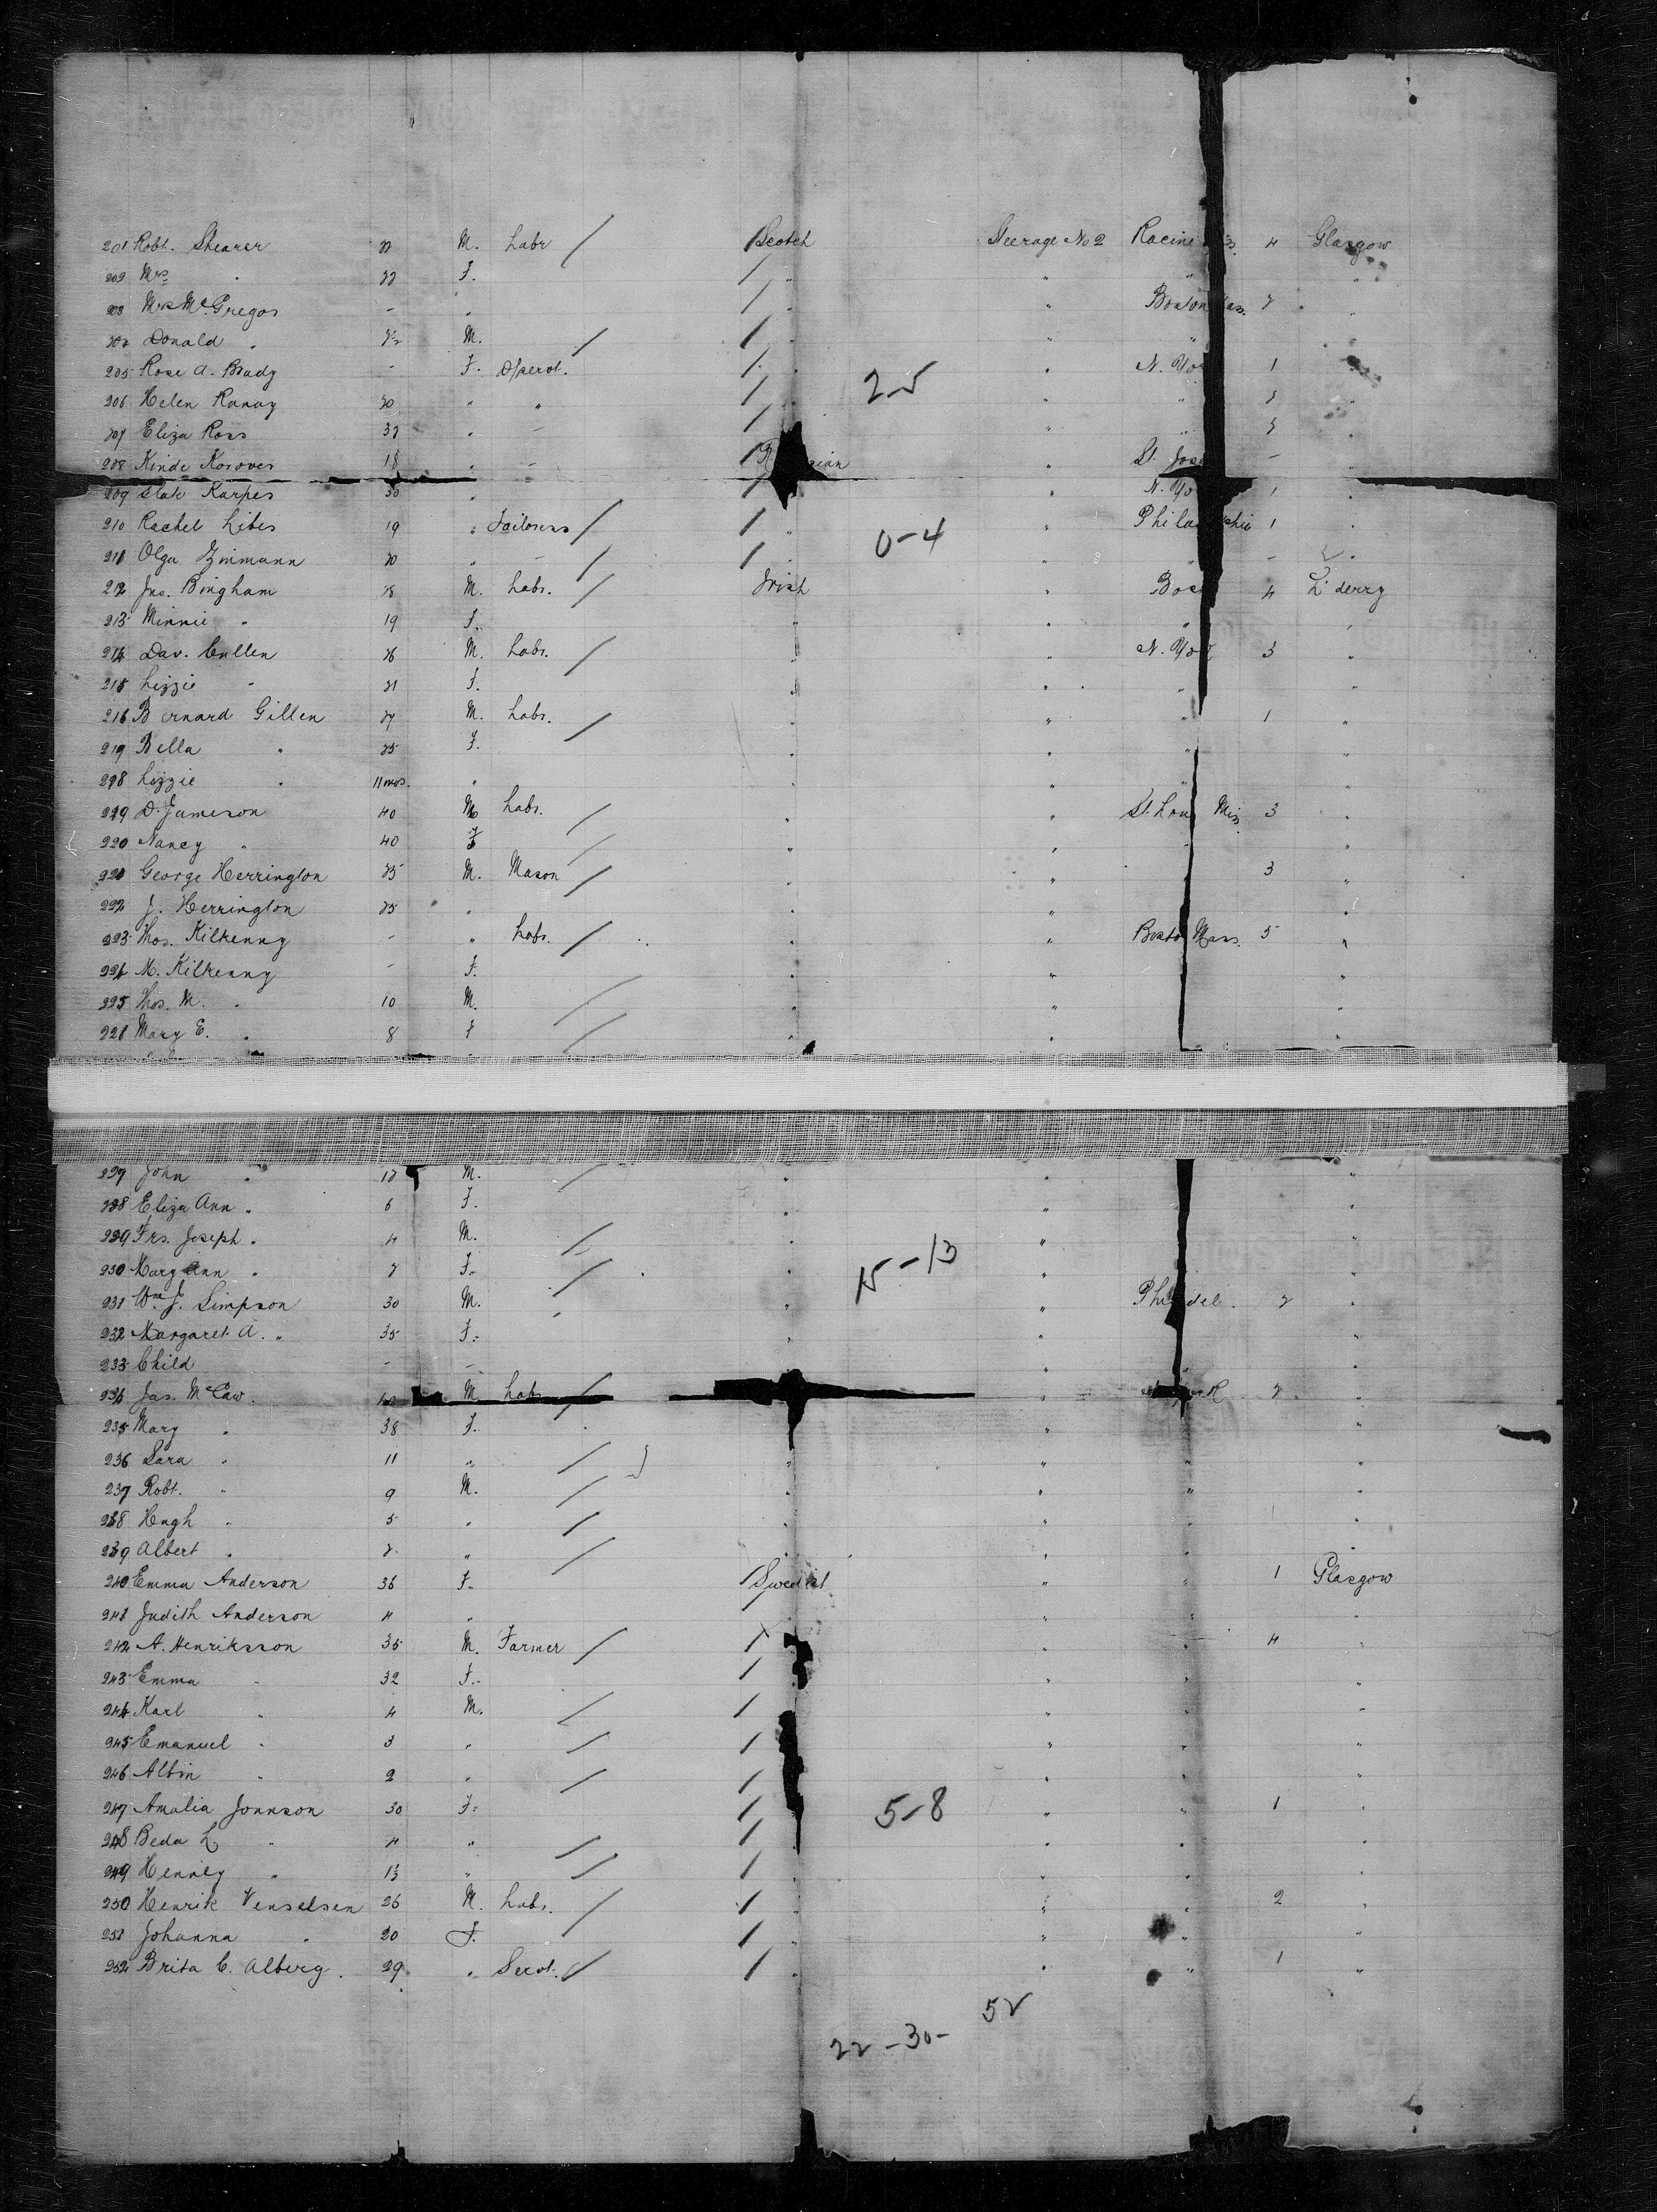 201 Robt. Shearer M. Labr Scotch Steerage No 2 Racine 4 Glasgow
202 Mrs " F. " " " "
203 Mrs McGregor - " " " Boston Mass. 2 " "
204 Donald " M. " " " "
205 Rose A. Brady - F. Operat. " " N. Yo 1 "
206 Helen Ranay 30 " " " " " 3 "
207 Eliza Ross 37 " - " " " 3 "
208 Kinde Kosoves 18 " - " St. Jos - "
209 Karpes 30 " " " N. Yo 1 "
210 Rachel Libes 19 " Tailoress " " Phila phia 1 "
211 Olga Zinmann 20 " - " " " - "
212 Jno. Bingham 28 M. Labr. Irish " Bos 4 L'derry
213 Minnie " 19 F. " " " "
214 Dav. Cullen 26 M. Labr. " " N. Yo 3 "
215 Lizzie " 21 F. " " " "
216 Bernard Gillen 27 M. Labr. " " " 1 "
217 Bella " 25 F. " " " "
218 Lizzie " 11 mos. " " " " "
219 D. Jameson 40 M Labr. " " St. Lou Mis 3 "
220 Nancy " 40 F " " " "
221 George Herrington 25 M. Mason " " " 3 "
222 J. Herrington 25 " " " "
223 Thos. Kilkenny - " Labr. " " Bosto Mass. 5 "
224 M. Kilkenny - F. " " "
225 Thos. M. " 10 M. " " "
226 Mary E. " 8 F " " "
227 John " 12 M. " " "
228 Eliza Ann " 6 F. " " "
229 Frs. Joseph " 4 M. " " "
230 Mary Ann " 2 F. " " "
231 Wm J. Simpson 30 M. " " Ph del. 2 "
232 Margaret A. " 35 F. " " "
233 Child - - " " "
234 Jas. McCaw. 40 M Labr. " 2 "
235 Mary " 38 F. " "
236 Sara " 11 " " " " "
237 Robt. " 9 M. " " " "
238 Hugh " 5 " " " " "
239 Albert " 2 " " " " "
240 Emma Anderson 36 F. Swedish " " 1 Glasgow
241 Judith Anderson 4 " " " " "
242 A. Henriksson 35 M. Farmer " " 4 "
243 Emma " 32 F. " " "
244 Karl " 4 M. " " "
245 Emanuel " 3 " " " "
246 Albin " 2 " " " "
247 Amalia Jonnson 30 F. " " 1 "
248 Beda L " 4 " " " "
249 Henney " 1½ " " " " "
250 Henrik Venselsen 26 M. Labr. " " " 2 "
251 Johanna " 20 F. " " " "
252 Brita C. Alberg. 29 " Servt. " " " 1 "
2-5
0-4
15-13
5-8
52
22-30-